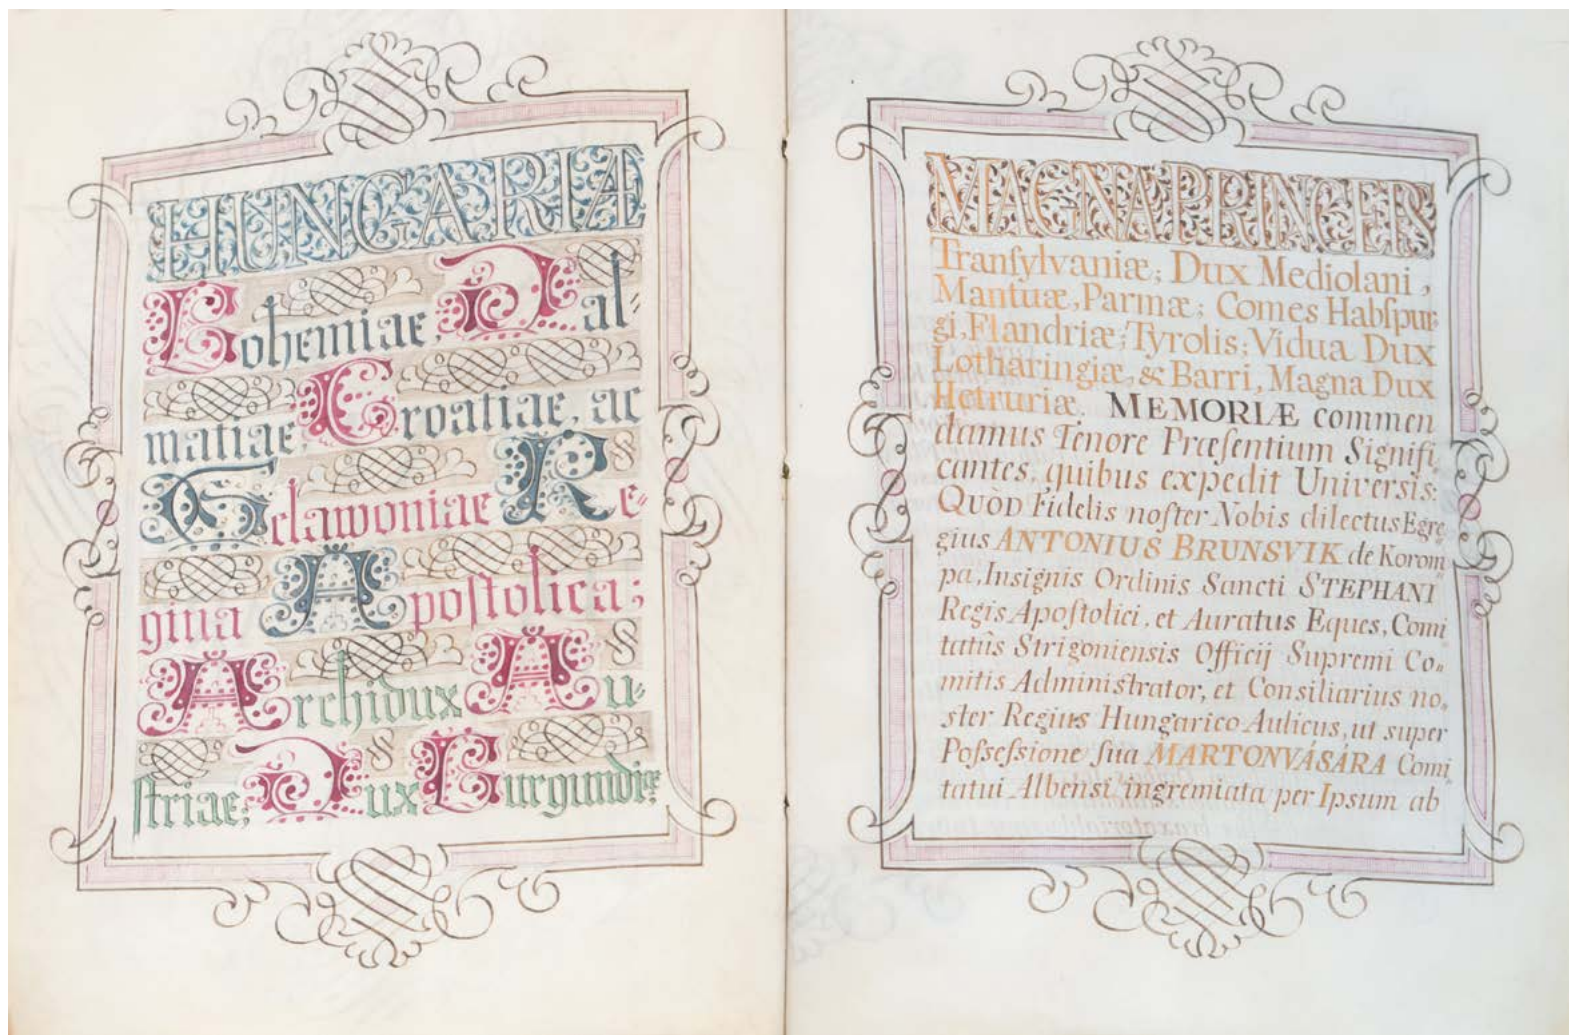 HUNGARIÆ
Bohemiae, Dal-
matiae, Croatiae, ac
Sclawoniae Re-
gina Apoſtolica;
Archidux Au-
ſtriae; Dux Burgundiæ
MAGNA PRINCEPS
Tranſylvaniæ; Dux Mediolani,
Mantuæ, Parmæ; Comes Habſpur-
gi, Flandriæ; Tyrolis; Vidua Dux
Lotharingiæ, & Barri, Magna Dux
Hetruriæ. MEMORIÆ commen
damus Tenore Præſentium Signifi„
cantes, quibus expedit Universis:
QUÒD Fidelis noſter Nobis dilectus Egre„
gius ANTONIUS BRUNSVIK de Korom„
pa, Insignis Ordinis Sancti STEPHANI
Regis Apoſtolici, et Auratus Eques, Comi
tatûs Strigoniensis Officij Supremi Co„
mitis Adminiſtrator, et Consiliarius no„
ſter Regius Hungarico Aulicus, ut super
Poſseſsione ſua MARTONVÁSÁRA Comi„
tatui Albensi ingremiata per Ipsum ab